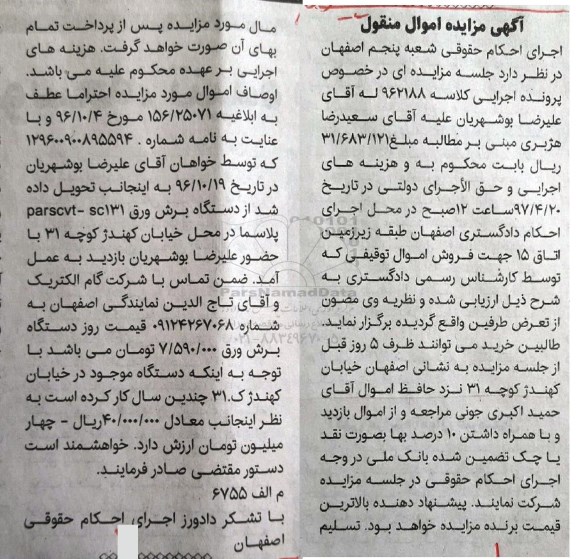 آگهی مزایده اموال منقول
اجرای احکام حقوقی شعبه پنجم اصفهان
در نظر دارد جلسه مزایده ای در خصوص
پرونده اجرایی کلاسه ۹۶۲۱۸۸ له آقای
علیرضا بوشهریان علیه آقای سعیدرضا
هژبری مبنی بر مطالبه مبلغ۳۱/۶۸۳/۱۲۱
ریال بابت محکوم به و هزینه های
اجرایی و حق الأجرای دولتی در تاریخ
۹۷/۴/۲۰ساعت ۱۲صبح در محل اجرای
احکام دادگستری اصفهان طبقه زیرزمین
اتاق ۱۵ جهت فروش اموال توقیفی که
توسط کارشناس رسمی دادگستری به
شرح ذیل ارزیابی شده و نظریه وی مصون
از تعرض طرفین واقع گردیده برگزار نماید.
طالبین خرید می توانند ظرف ۵ روز قبل
از جلسه مزایده به نشانی اصفهان خیابان
کهندژ کوچه ۳۱ نزد حافظ اموال آقای
حمید اکبری جونی مراجعه و از اموال بازدید
و با همراه داشتن ۱۰ درصد بها بصورت نقد
یا چک تضمین شده بانک ملی در وجه
اجرای احکام حقوقی در جلسه مزایده
شرکت نمایند. پیشنهاد دهنده بالاترین
قیمت برنده مزایده خواهد بود. تسلیم
مال مورد مزایده پس از پرداخت تمام
بهای آن صورت خواهد گرفت. هزینه های
اجرایی بر عهده محکوم علیه می باشد.
اوصاف اموال مورد مزایده احتراما عطف
به ابلاغیه ۱۵۶/۲۵۰۷۱ مورخ ۹۶/۱۰/۴ و با
عنایت به نامه شماره . ۱۲۹۶۰۰۹۰۰۸۹۵۵۹۴
که توسط خواهان آقای علیرضا بوشهریان
در تاریخ ۹۶/۱۰/۱۹ به اینجانب تحویل داده
شد از دستگاه برش ورق parscvt- sc۱۳۱
پلاسما در محل خیابان کهندژ کوچه ۳۱ با
حضور علیرضا بوشهریان بازدید به عمل
آمد. ضمن تماس با شرکت گام الکتریک
و آقای تاج الدین نمایندگی اصفهان به
شماره ۰۹۱۲۴۲۶۷۰۶۸ قیمت روز دستگاه
برش ورق ۷/۵۹۰/۰۰۰ تومان می باشد با
توجه به اینکه دستگاه موجود در خیابان
کهندژ ک.۳۱ چندین سال کار کرده است به
نظر اینجانب معادل ۴۰/۰۰۰/۰۰۰ریال - چهار
میلیون تومان ارزش دارد. خواهشمند است
دستور مقتضی صادر فرمایند.
م الف ۶۷۵۵
با تشکر دادورز اجرای احکام حقوقی
اصفهان
ParsNamadData